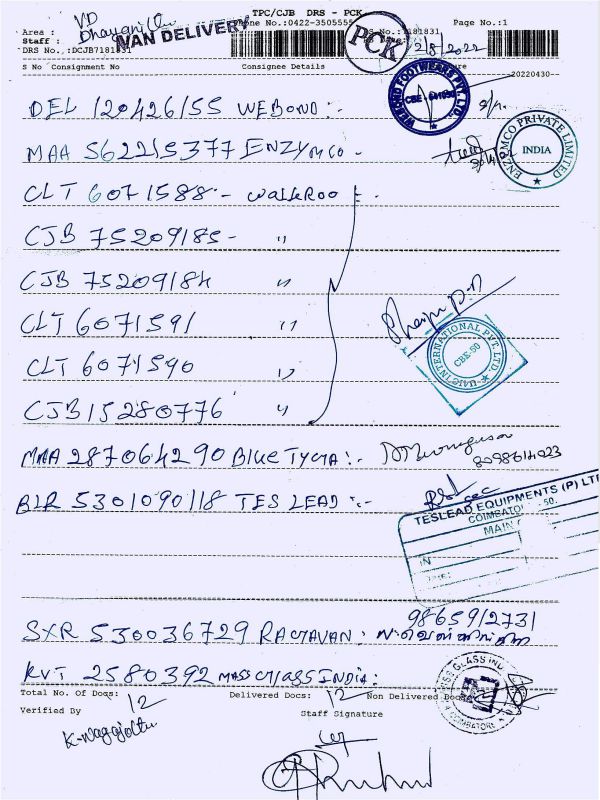 TPC/CJB DRS - PCK
Area : VD
Staff : VAN DELIVERY Phone No.:0422-3505555 Page No.:1
DRS No.:DCJB7181831 PCK 2/8/2022
S No Consignment No Consignee Details
20220430--
WELKIND FOOTWEARS PVT. LTD.
CBE - 641050
DEL 120426155 WEBOND :-
MAA 562215377 ENZYMCO -
ENZYMCO PRIVATE LIMITED
INDIA
CLT 6071588 - Walkeroo :-
CJB 75209185 - "
CJB 75209184 "
CLT 6071591 "
INTERNATIONAL PVT. LTD.
CBE-50
CLT 6071590 "
CJB 15280776 "
MAA 287064290 Blue Tyga :-
8098614023
BLR 5301090118 TES LEAD :-
TESLEAD EQUIPMENTS (P) LTD
COIMBATO 50.
MAIN G
IN
TIME:
9865912731
SXR 530036729 RAGAVAN :
KVT 2580392 MASS GLASS INDIA :
GLASS INDIA
COIMBATORE
Total No. Of Docs: 12 Delivered Docs: 12 Non Delivered Docs:
Verified By Staff Signature